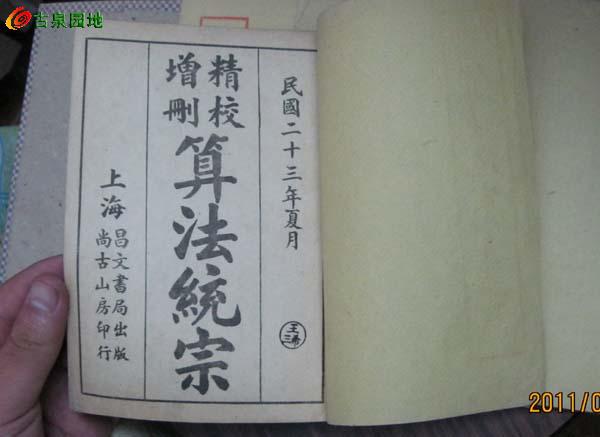 古泉园地
民國二十三年夏月
精校
增刪
算法統宗
上海
昌文書局出版
尚古山房印行
2011/0